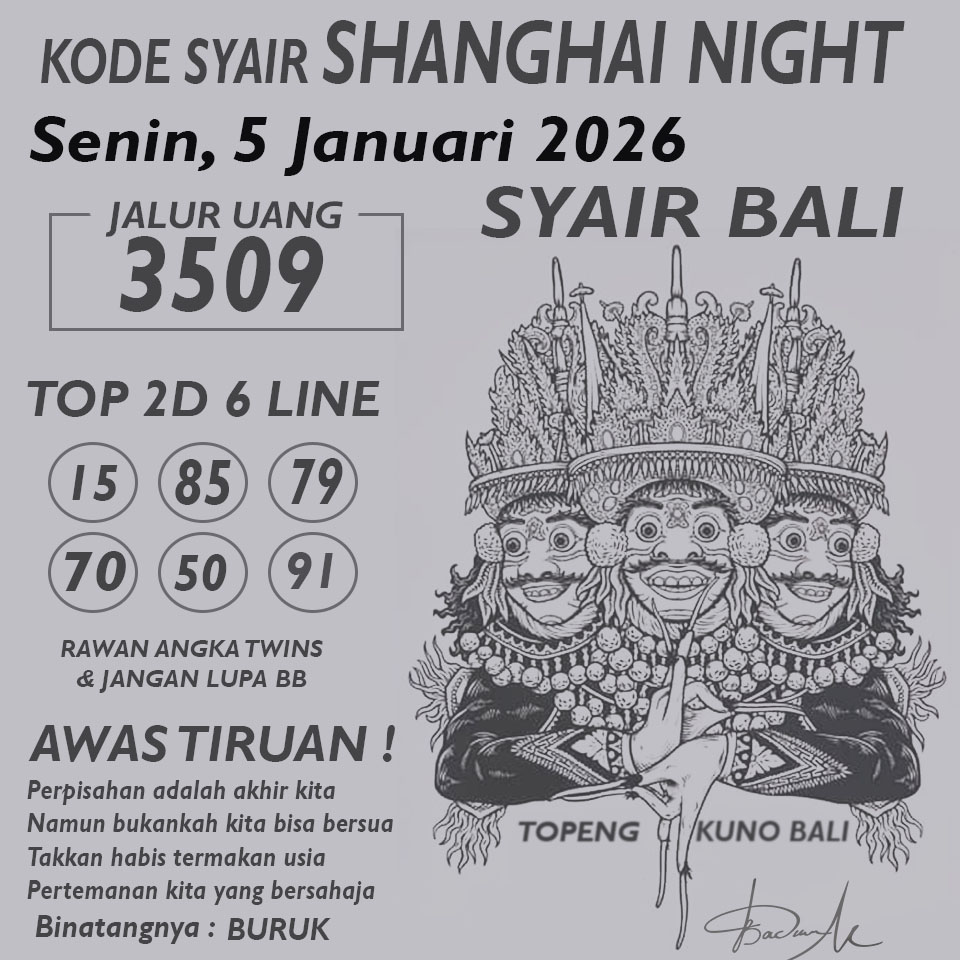 KODE SYAIR SHANGHAI NIGHT
Senin, 5 Januari 2026
SYAIR BALI
JALUR UANG
3509
TOP 2D 6 LINE
15 85 79
70 50 91
RAWAN ANGKA TWINS
& JANGAN LUPA BB
AWAS TIRUAN !
Perpisahan adalah akhir kita
Namun bukankah kita bisa bersua
Takkan habis termakan usia
Pertemanan kita yang bersahaja
Binatangnya : BURUK
TOPENG KUNO BALI